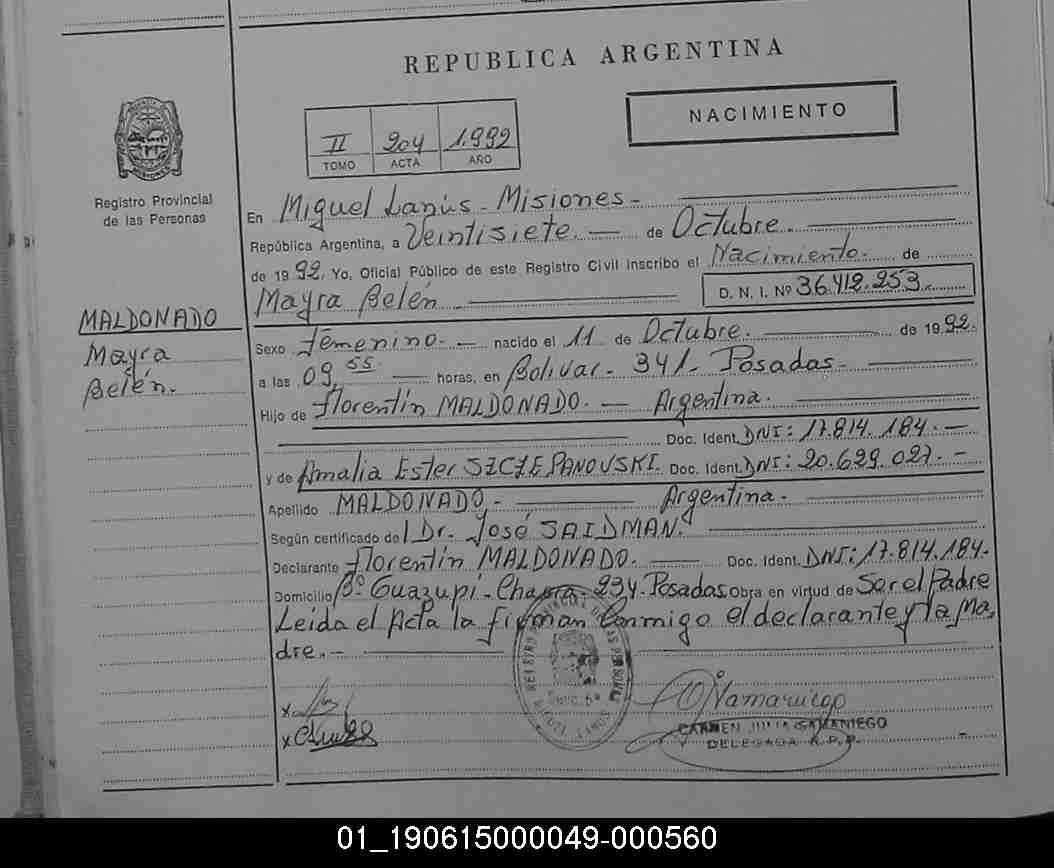 REPUBLICA ARGENTINA
NACIMIENTO
II 204 1.992
TOMO ACTA AÑO
Registro Provincial
de las Personas
En Miguel Lanús - Misiones -
República Argentina, a Veintisiete. — de Octubre.
de 1992. Yo, Oficial Público de este Registro Civil inscribo el Nacimiento. de
Mayra Belén D. N. I. Nº 36.412.253.
MALDONADO
Mayra
Belén.
Sexo Femenino. — nacido el 11 de Octubre. de 1992.
a las 09,55 horas, en Bolivar - 341 - Posadas -
Hijo de Florentín MALDONADO. — Argentina.
Doc. Ident. DNI: 17.814.184. —
y de Amalia Ester SZCZEPANOVSKI. Doc. Ident. DNI: 20.629.027. —
Apellido MALDONADO. — Argentina -
Según certificado de l Dr. José SAIDMAN.
Declarante Florentín MALDONADO. Doc. Ident. DNI: 17.814.184.
Domicilio Bº Guazupí - Chacra - 234 - Posadas Obra en virtud de Ser el Padre
Leída el Acta la firman Conmigo el declarante y la Ma,
dre. —
REGISTRO PROVINCIAL DE LAS PERSONAS
x
x
CARMEN JULIA SAMANIEGO
DELEGADA R.P.P.
01_190615000049-000560